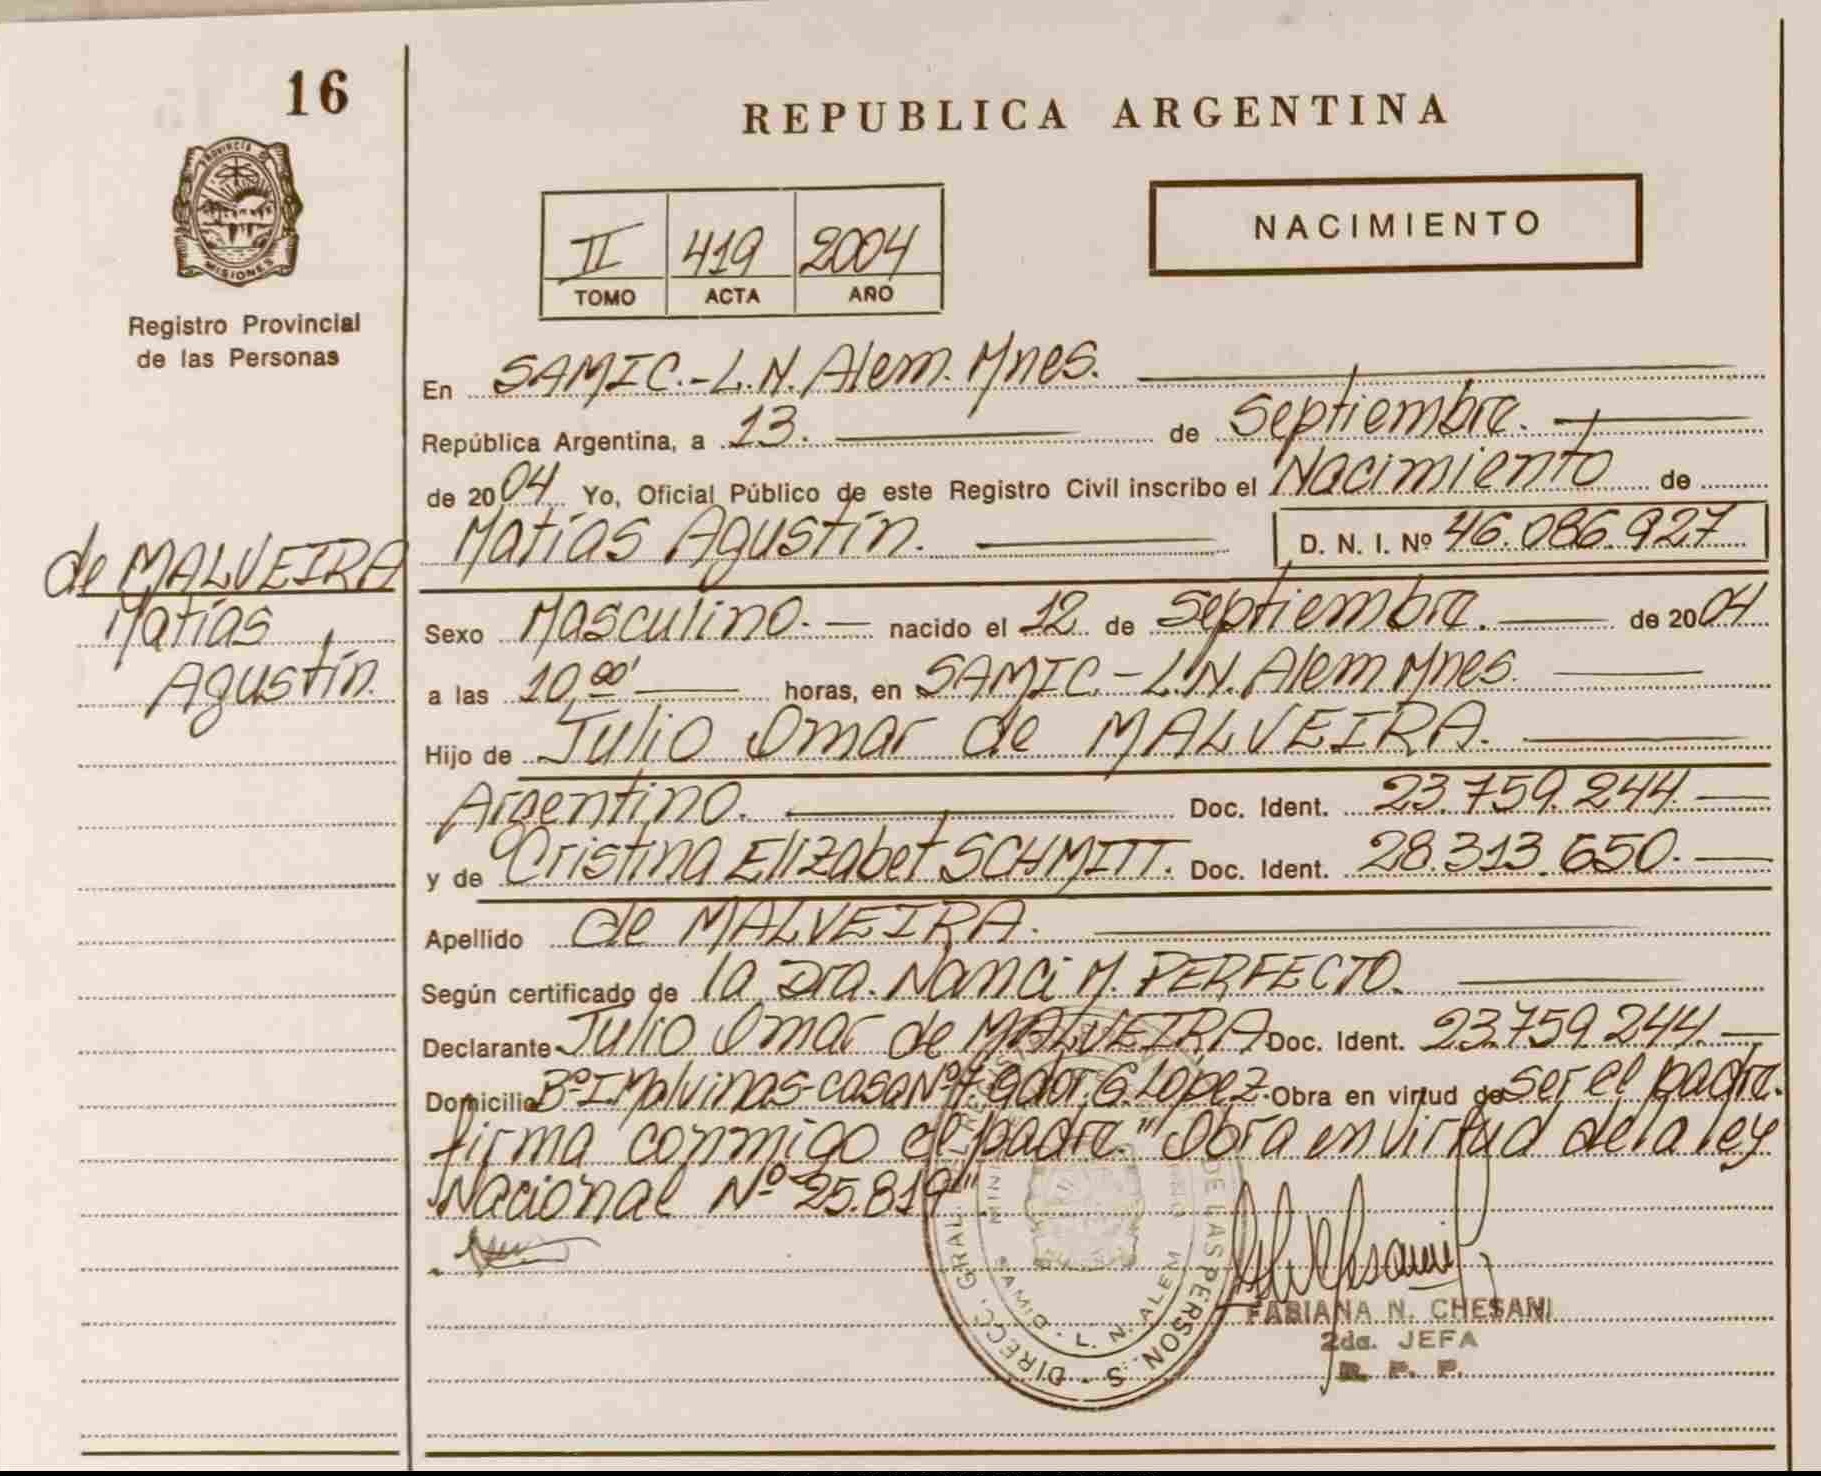 16
REPUBLICA ARGENTINA
PROVINCIA DE
MISIONES
Registro Provincial
de las Personas
II 419 2004
TOMO ACTA AÑO
NACIMIENTO
En SAMIC.-L.N. Alem. Mnes.
República Argentina, a 13. de Septiembre.
de 2004 Yo, Oficial Público de este Registro Civil inscribo el Nacimiento de
Matías Agustín. D. N. I. Nº 46.086.927
de MALVEIRA
Matías
Agustín.
Sexo Masculino. nacido el 12 de Septiembre. de 2004
a las 10,00' horas, en SAMIC.-L.N. Alem. Mnes.
Hijo de Julio Omar de MALVEIRA.
Argentino. Doc. Ident. 23.759.244.
y de Cristina Elizabet SCHMITT. Doc. Ident. 28.313.650.
Apellido de MALVEIRA.
Según certificado de la Dra. Nanci M. PERFECTO.
Declarante Julio Omar de MALVEIRA Doc. Ident. 23.759.244.
Domicilio Bº I. Malvinas-casa Nº 7 Gdor. G. Lopez. Obra en virtud de ser el padre.
firma conmigo el padre. "Obra en virtud de la ley
Nacional Nº 25.819"
DIRECC. GRAL. DE LAS PERSON S
SAMIC. - L. N. ALEM
FABIANA N. CHESANI
2da. JEFA
R. P. P.